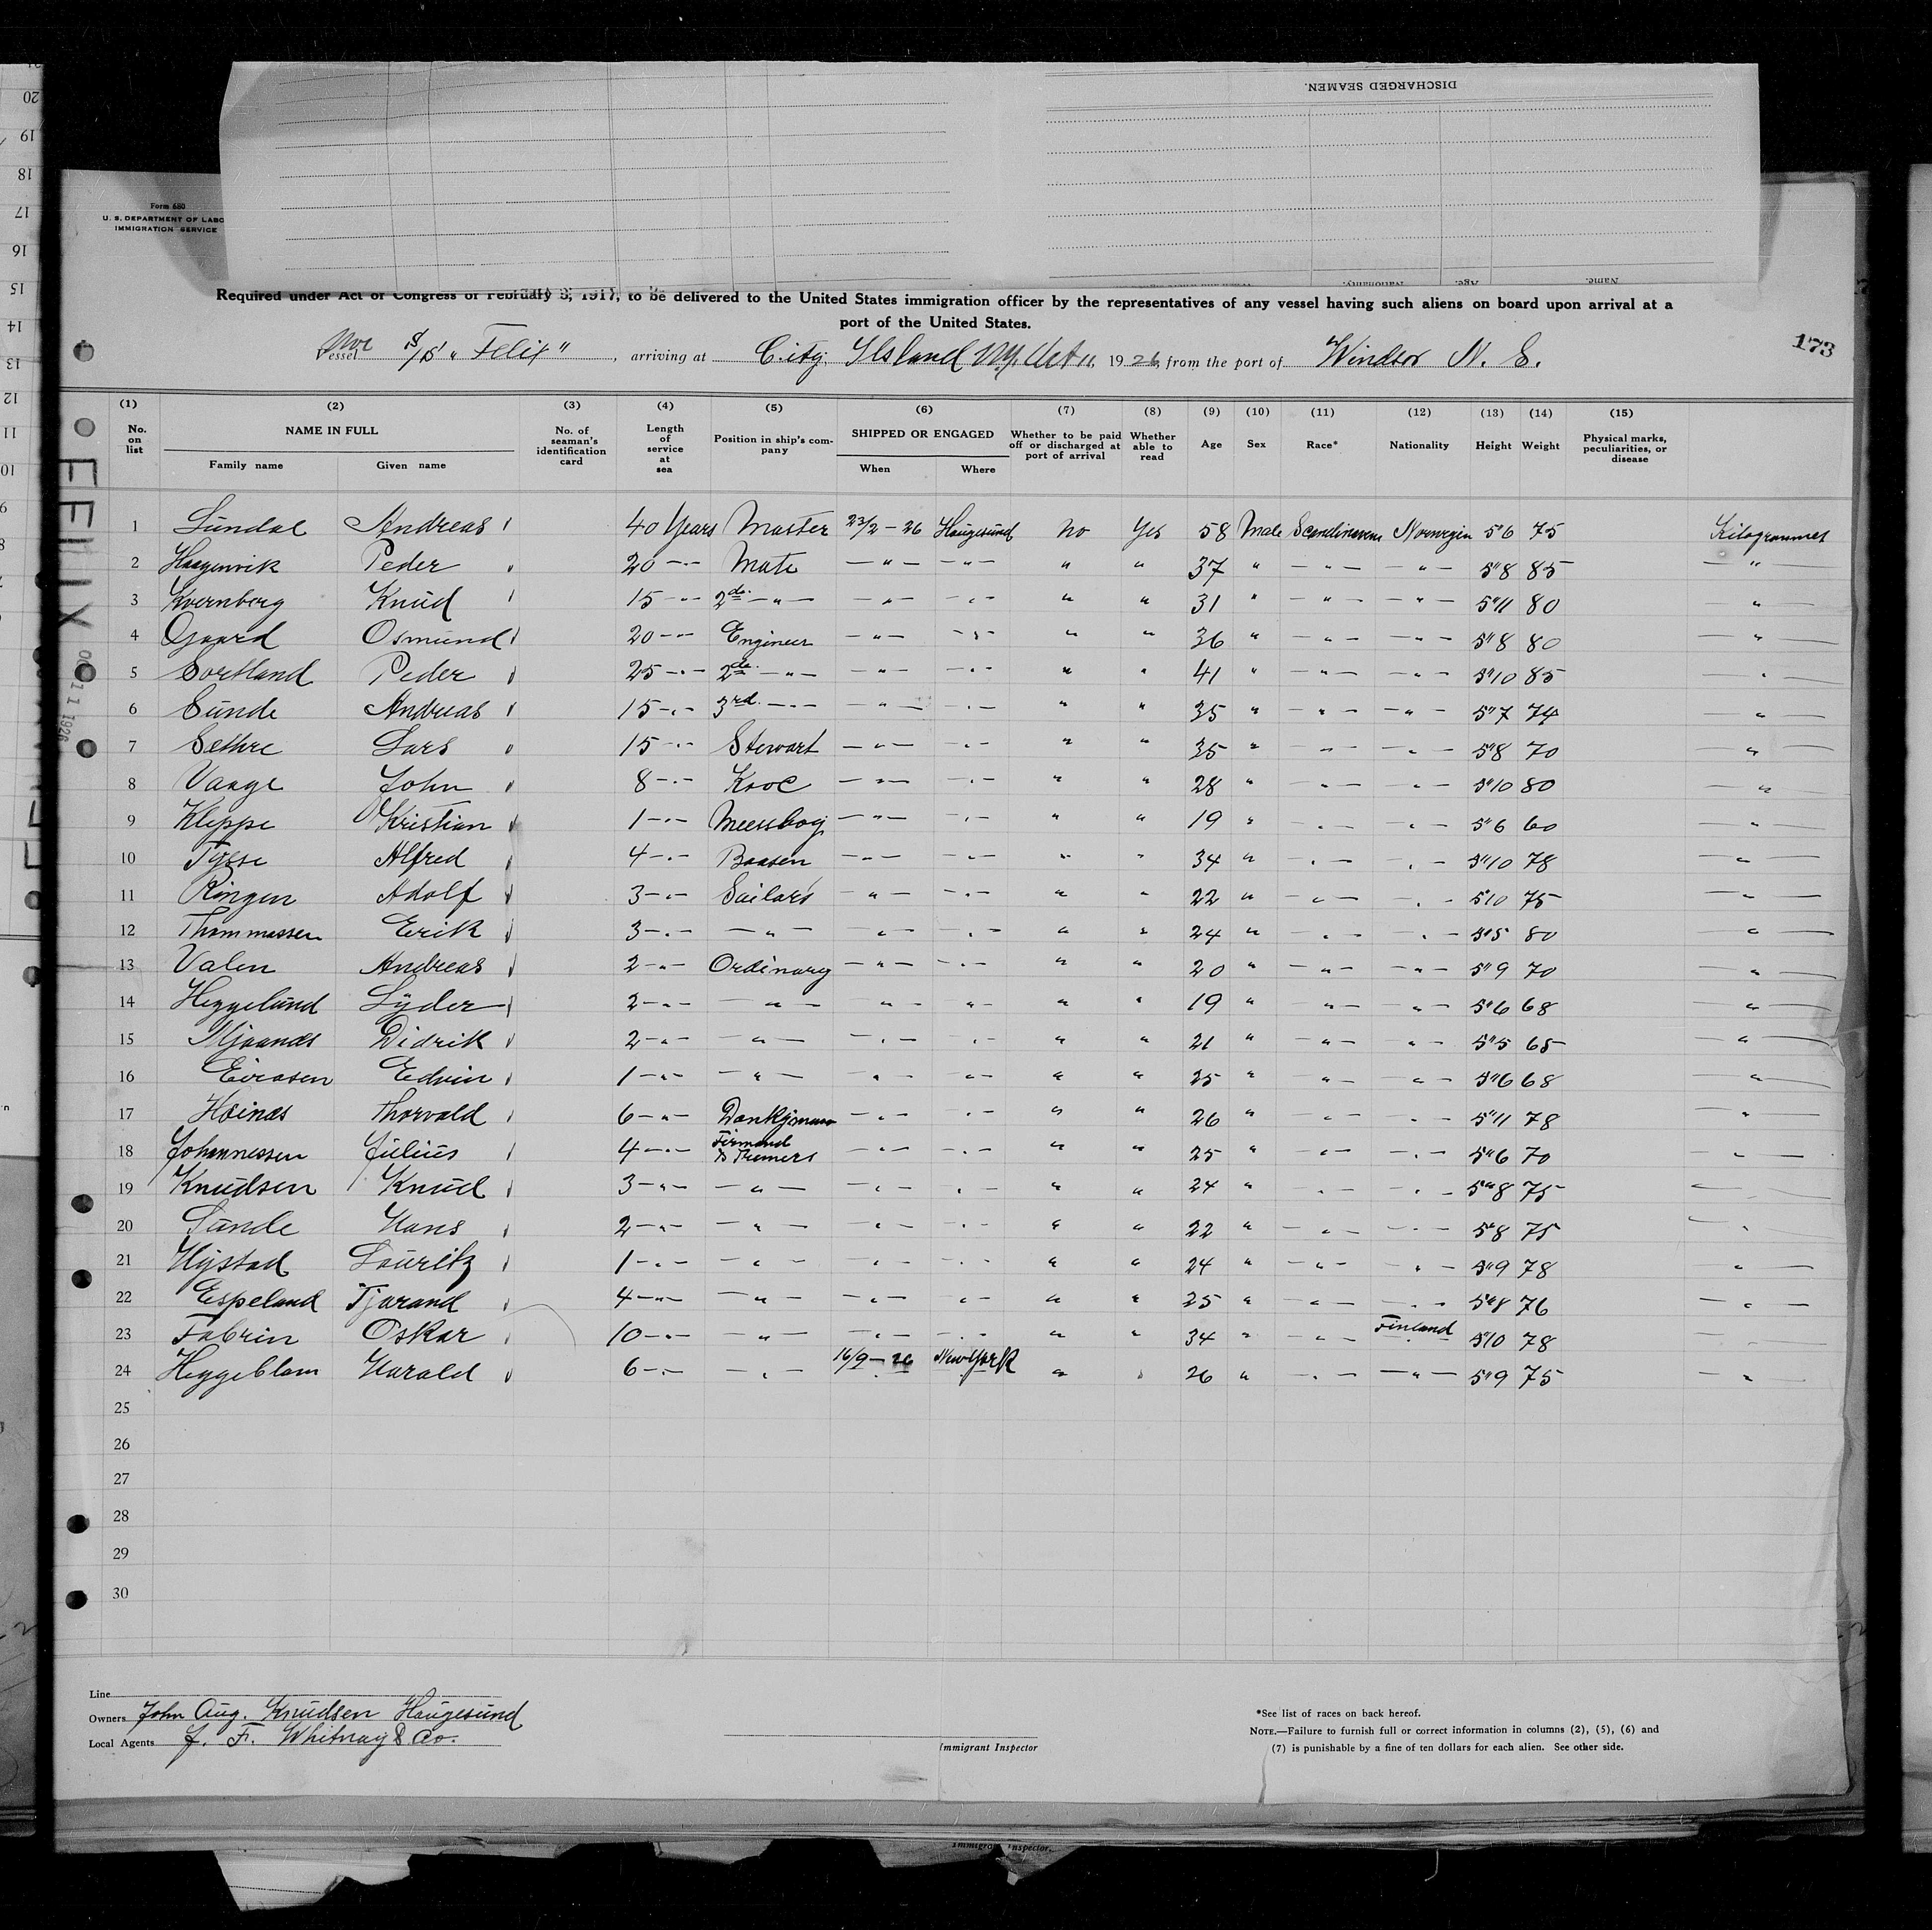 DISCHARGED SEAMEN.
Name. Age. Nationality.
Form 680
U. S. DEPARTMENT OF LABO
IMMIGRATION SERVICE
Required under Act of Congress of February 5, 1917, to be delivered to the United States immigration officer by the representatives of any vessel having such aliens on board upon arrival at a
port of the United States.
173
Nor Vessel S/S "Felix", arriving at City Island N.Y. Oct 11, 1926, from the port of Windsor N. S.
(1) (2) (3) (4) (5) (6) (7) (8) (9) (10) (11) (12) (13) (14) (15)
No. on list NAME IN FULL Family name Given name No. of seaman's identification card Length of service at sea Position in ship's company SHIPPED OR ENGAGED When Where Whether to be paid off or discharged at port of arrival Whether able to read Age Sex Race* Nationality Height Weight Physical marks, peculiarities, or disease
FELIX
OCT 11 1926
1 Sundal Andreas 40 Years Master 23/2-26 Haugesund No Yes 58 Male Scandinavene Norwegin 5"6 75 Kilogrammes
2 Haagenvik Peder 20 -"- Mate -"- -"- " " 37 " -"- -"- 5"8 85 -"-
3 Kvernberg Knud 15 -"- 2de. -"- -"- -"- " " 31 " -"- -"- 5"11 80 -"-
4 Gjaard Osmund 20 -"- Engineer -"- -"- " " 36 " -"- -"- 5"8 80 -"-
5 Sortland Peder 25 -"- 2de. -"- -"- -"- " " 41 " -"- -"- 5"10 85 -"-
6 Sunde Andreas 15 -"- 3rd. -"- -"- -"- " " 35 " -"- -"- 5"7 74 -"-
7 Sethre Lars 15 -"- Stewart -"- -"- " " 35 " -"- -"- 5"8 70 -"-
8 Vaage John 8 -"- Kooc -"- -"- " " 28 " -"- -"- 5"10 80 -"-
9 Kleppe Kristian 1 -"- Meersboy -"- -"- " " 19 " -"- -"- 5"6 60 -"-
10 Tysse Alfred 4 -"- Baasen -"- -"- " " 34 " -"- -"- 5"10 78 -"-
11 Ringen Adolf 3 -"- Sailars -"- -"- " " 22 " -"- -"- 5"10 75 -"-
12 Thommassen Erik 3 -"- -"- -"- -"- " " 24 " -"- -"- 5"5 80 -"-
13 Valen Andreas 2 -"- Ordinary -"- -"- " " 20 " -"- -"- 5"9 70 -"-
14 Heggelund Lyder 2 -"- -"- -"- -"- " " 19 " -"- -"- 5"6 68 -"-
15 Mjaanes Didrik 2 -"- -"- -"- -"- " " 21 " -"- -"- 5"5 65 -"-
16 Eirasen Edvin 1 -"- -"- -"- -"- " " 25 " -"- -"- 5"6 68 -"-
17 Hoines Thorvald 6 -"- Dankjman -"- -"- " " 26 " -"- -"- 5"11 78 -"-
18 Johannessen Julius 4 -"- Firmand & Trimers -"- -"- " " 25 " -"- -"- 5"6 70 -"-
19 Knudsen Knud 3 -"- -"- -"- -"- " " 24 " -"- -"- 5"8 75 -"-
20 Sunde Hans 2 -"- -"- -"- -"- " " 22 " -"- -"- 5"8 75 -"-
21 Hystad Lauritz 1 -"- -"- -"- -"- " " 24 " -"- -"- 5"9 78 -"-
22 Espeland Tjerand 4 -"- -"- -"- -"- " " 25 " -"- -"- 5"8 76 -"-
23 Fabrin Oskar 10 -"- -"- -"- -"- " " 34 " -"- Finland 5"10 78
24 Heggeblom Harald 6 -"- -"- 16/9-26 New York " " 26 " -"- -"- 5"9 75 -"-
25
26
27
28
29
30
Line
Owners John Aug. Knudsen Haugesund
Local Agents J. F. Whitney & Co.
Immigrant Inspector
*See list of races on back hereof.
NOTE.—Failure to furnish full or correct information in columns (2), (5), (6) and
(7) is punishable by a fine of ten dollars for each alien. See other side.
Immigrant Inspector.